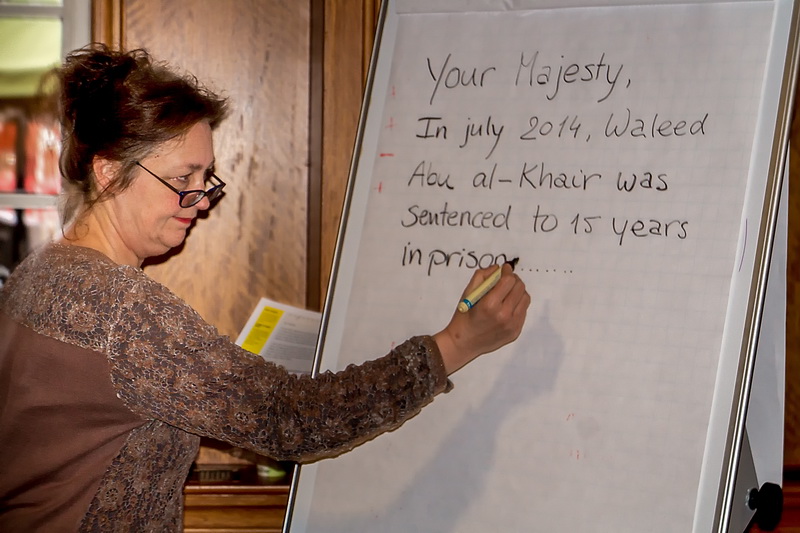 Your Majesty,
In july 2014, Waleed
Abu al-Khair was
sentenced to 15 years
in prison.......